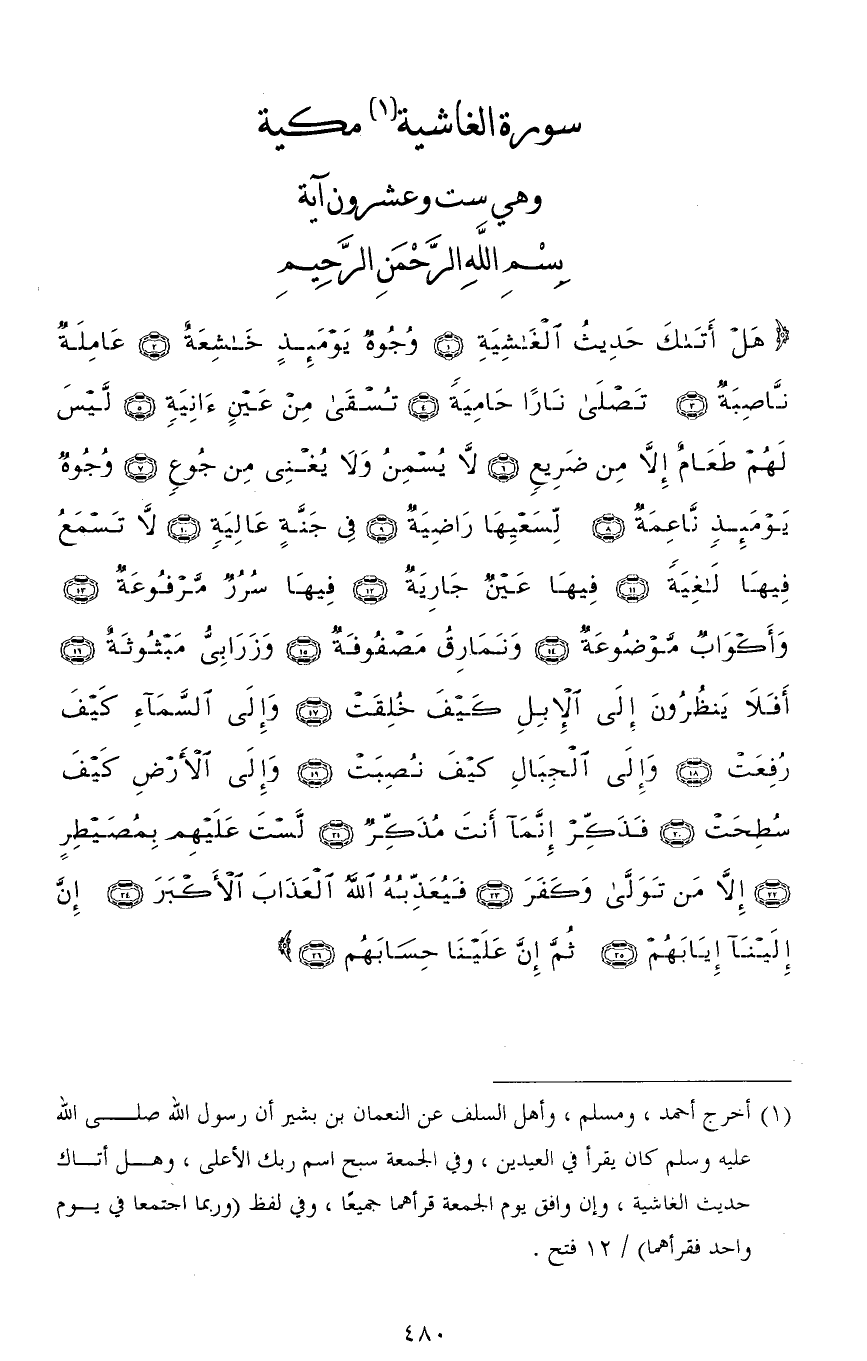 سورة الغاشية(١) مكية
وهي ست وعشرون آية
بِسْمِ اللَّهِ الرَّحْمَنِ الرَّحِيمِ
﴿ هَلْ أَتَىٰكَ حَدِيثُ ٱلْغَٰشِيَةِ ۝١ وُجُوهٌ يَوْمَئِذٍ خَٰشِعَةٌ ۝٢ عَامِلَةٌ
نَّاصِبَةٌ ۝٣ تَصْلَىٰ نَارًا حَامِيَةً ۝٤ تُسْقَىٰ مِنْ عَيْنٍ ءَانِيَةٍ ۝٥ لَّيْسَ
لَهُمْ طَعَامٌ إِلَّا مِن ضَرِيعٍ ۝٦ لَّا يُسْمِنُ وَلَا يُغْنِى مِن جُوعٍ ۝٧ وُجُوهٌ
يَوْمَئِذٍ نَّاعِمَةٌ ۝٨ لِّسَعْيِهَا رَاضِيَةٌ ۝٩ فِى جَنَّةٍ عَالِيَةٍ ۝١٠ لَّا تَسْمَعُ
فِيهَا لَٰغِيَةً ۝١١ فِيهَا عَيْنٌ جَارِيَةٌ ۝١٢ فِيهَا سُرُرٌ مَّرْفُوعَةٌ ۝١٣
وَأَكْوَابٌ مَّوْضُوعَةٌ ۝١٤ وَنَمَارِقُ مَصْفُوفَةٌ ۝١٥ وَزَرَابِىُّ مَبْثُوثَةٌ ۝١٦
أَفَلَا يَنظُرُونَ إِلَى ٱلْإِبِلِ كَيْفَ خُلِقَتْ ۝١٧ وَإِلَى ٱلسَّمَآءِ كَيْفَ
رُفِعَتْ ۝١٨ وَإِلَى ٱلْجِبَالِ كَيْفَ نُصِبَتْ ۝١٩ وَإِلَى ٱلْأَرْضِ كَيْفَ
سُطِحَتْ ۝٢٠ فَذَكِّرْ إِنَّمَآ أَنتَ مُذَكِّرٌ ۝٢١ لَّسْتَ عَلَيْهِم بِمُصَيْطِرٍ
۝٢٢ إِلَّا مَن تَوَلَّىٰ وَكَفَرَ ۝٢٣ فَيُعَذِّبُهُ ٱللَّهُ ٱلْعَذَابَ ٱلْأَكْبَرَ ۝٢٤ إِنَّ
إِلَيْنَآ إِيَابَهُمْ ۝٢٥ ثُمَّ إِنَّ عَلَيْنَا حِسَابَهُم ۝٢٦ ﴾
(١) أخرج أحمد ، ومسلم ، وأهل السلف عن النعمان بن بشير أن رسول الله صلى الله
عليه وسلم كان يقرأ في العيدين ، وفي الجمعة سبح اسم ربك الأعلى ، وهل أتاك
حديث الغاشية ، وإن وافق يوم الجمعة قرأهما جميعًا ، وفي لفظ (وربما اجتمعا في يوم
واحد فقرأهما) / ١٢ فتح .
٤٨٠